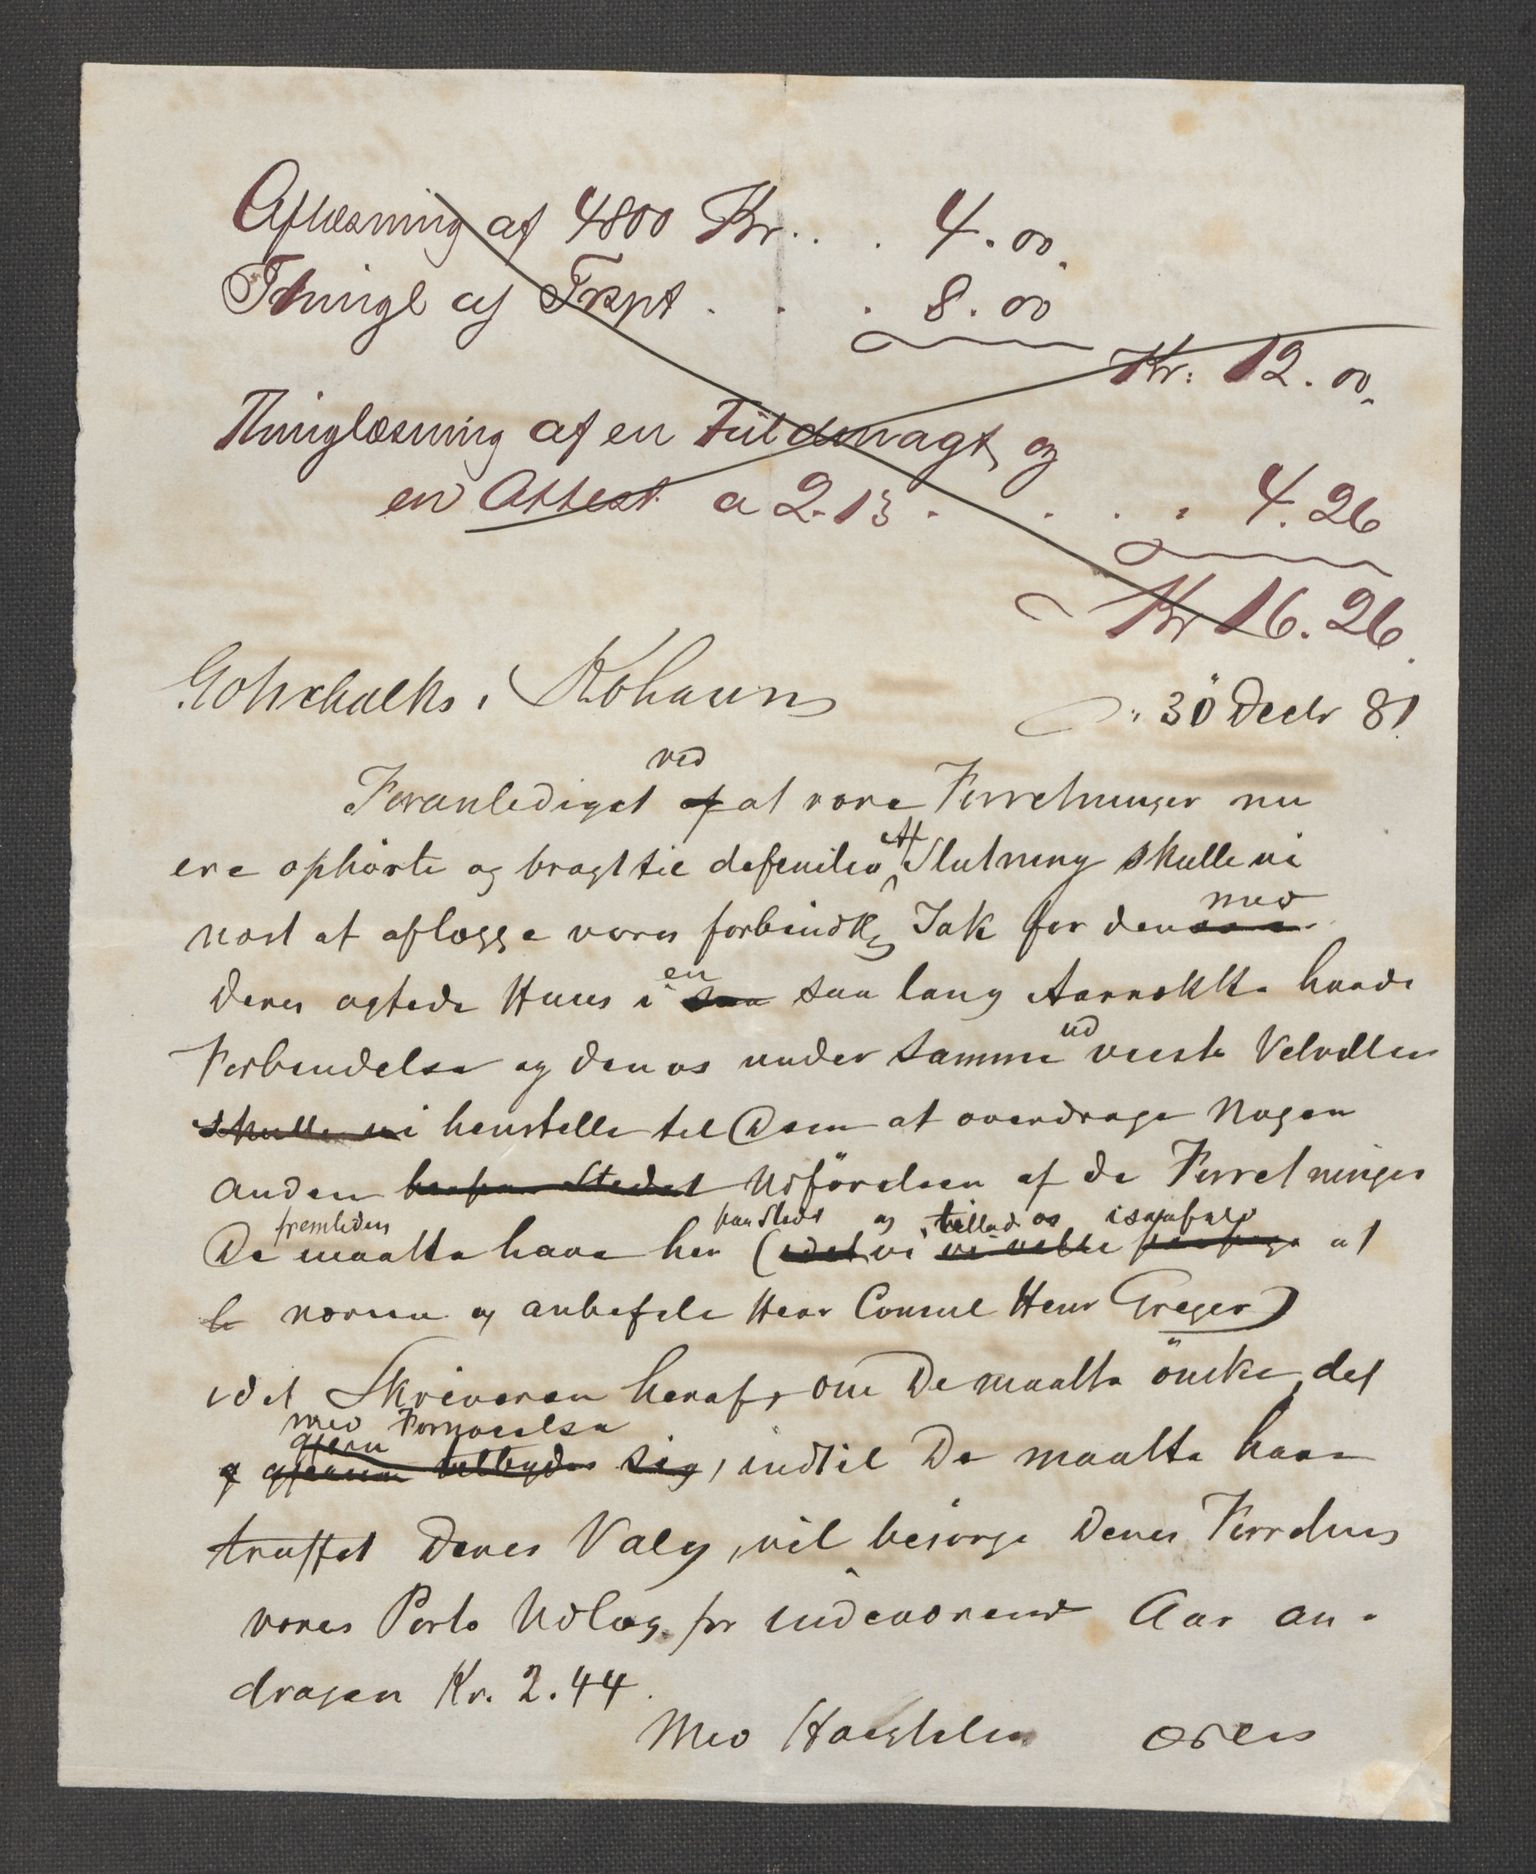 Aflæsning af 4800 Kr . . . 4.00.
Thingl af Trspt . . . 8.00
Kr: 12.00.
Thinglæsning af en Fuldmagt og
en Attest a 2.13 . . . . 4.26
Kr 16.26.
Gottschalks, Kbhavn
30 Decbr 81.
ved
Foranlediget af at vore Forretninger nu
ere ophörte og bragt til definitiv Slutning skulle vi
med
næst at aflægge vores forbindtl Tak for den
en
Deres agtede Huus i saa saa lang Aarrække havde
ud
Forbindelse og den os under samme viiste Velvillie
skulle vi henstille til Dem at overdrage Nogen
anden her paa Stedet Udförelsen af de Forretninger
fremtiden paa Stedet og tillade os isaafald
De maatte have her (idet vi vi ville at
nævne og anbefale Herr Consul Henr Greger)
idet Skriveren heraf, om De maatte önske det
med Fornöielse
gjern
og gjerne tilbyder sig, indtil De maatte have
truffet Deres Valg, vil besörge Deres Forretns
vores Porto Udlæg for indeværende Aar an-
dragen Kr. 2.44.
Med Høiagtelse ærbs